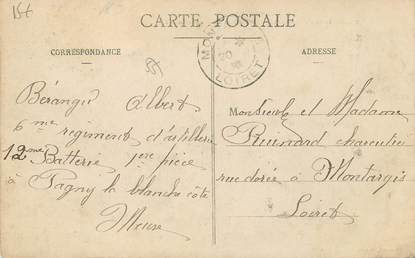 CARTE POSTALE
CORRESPONDANCE
ADRESSE
LOIRET
Béranger Albert
6me regiment d'artillerie
12me Batterie 1ere pièce
à Pagny la blanche côte
Meuse
Monsieur et Madame
charcutier
rue dorée à Montargis
Loiret